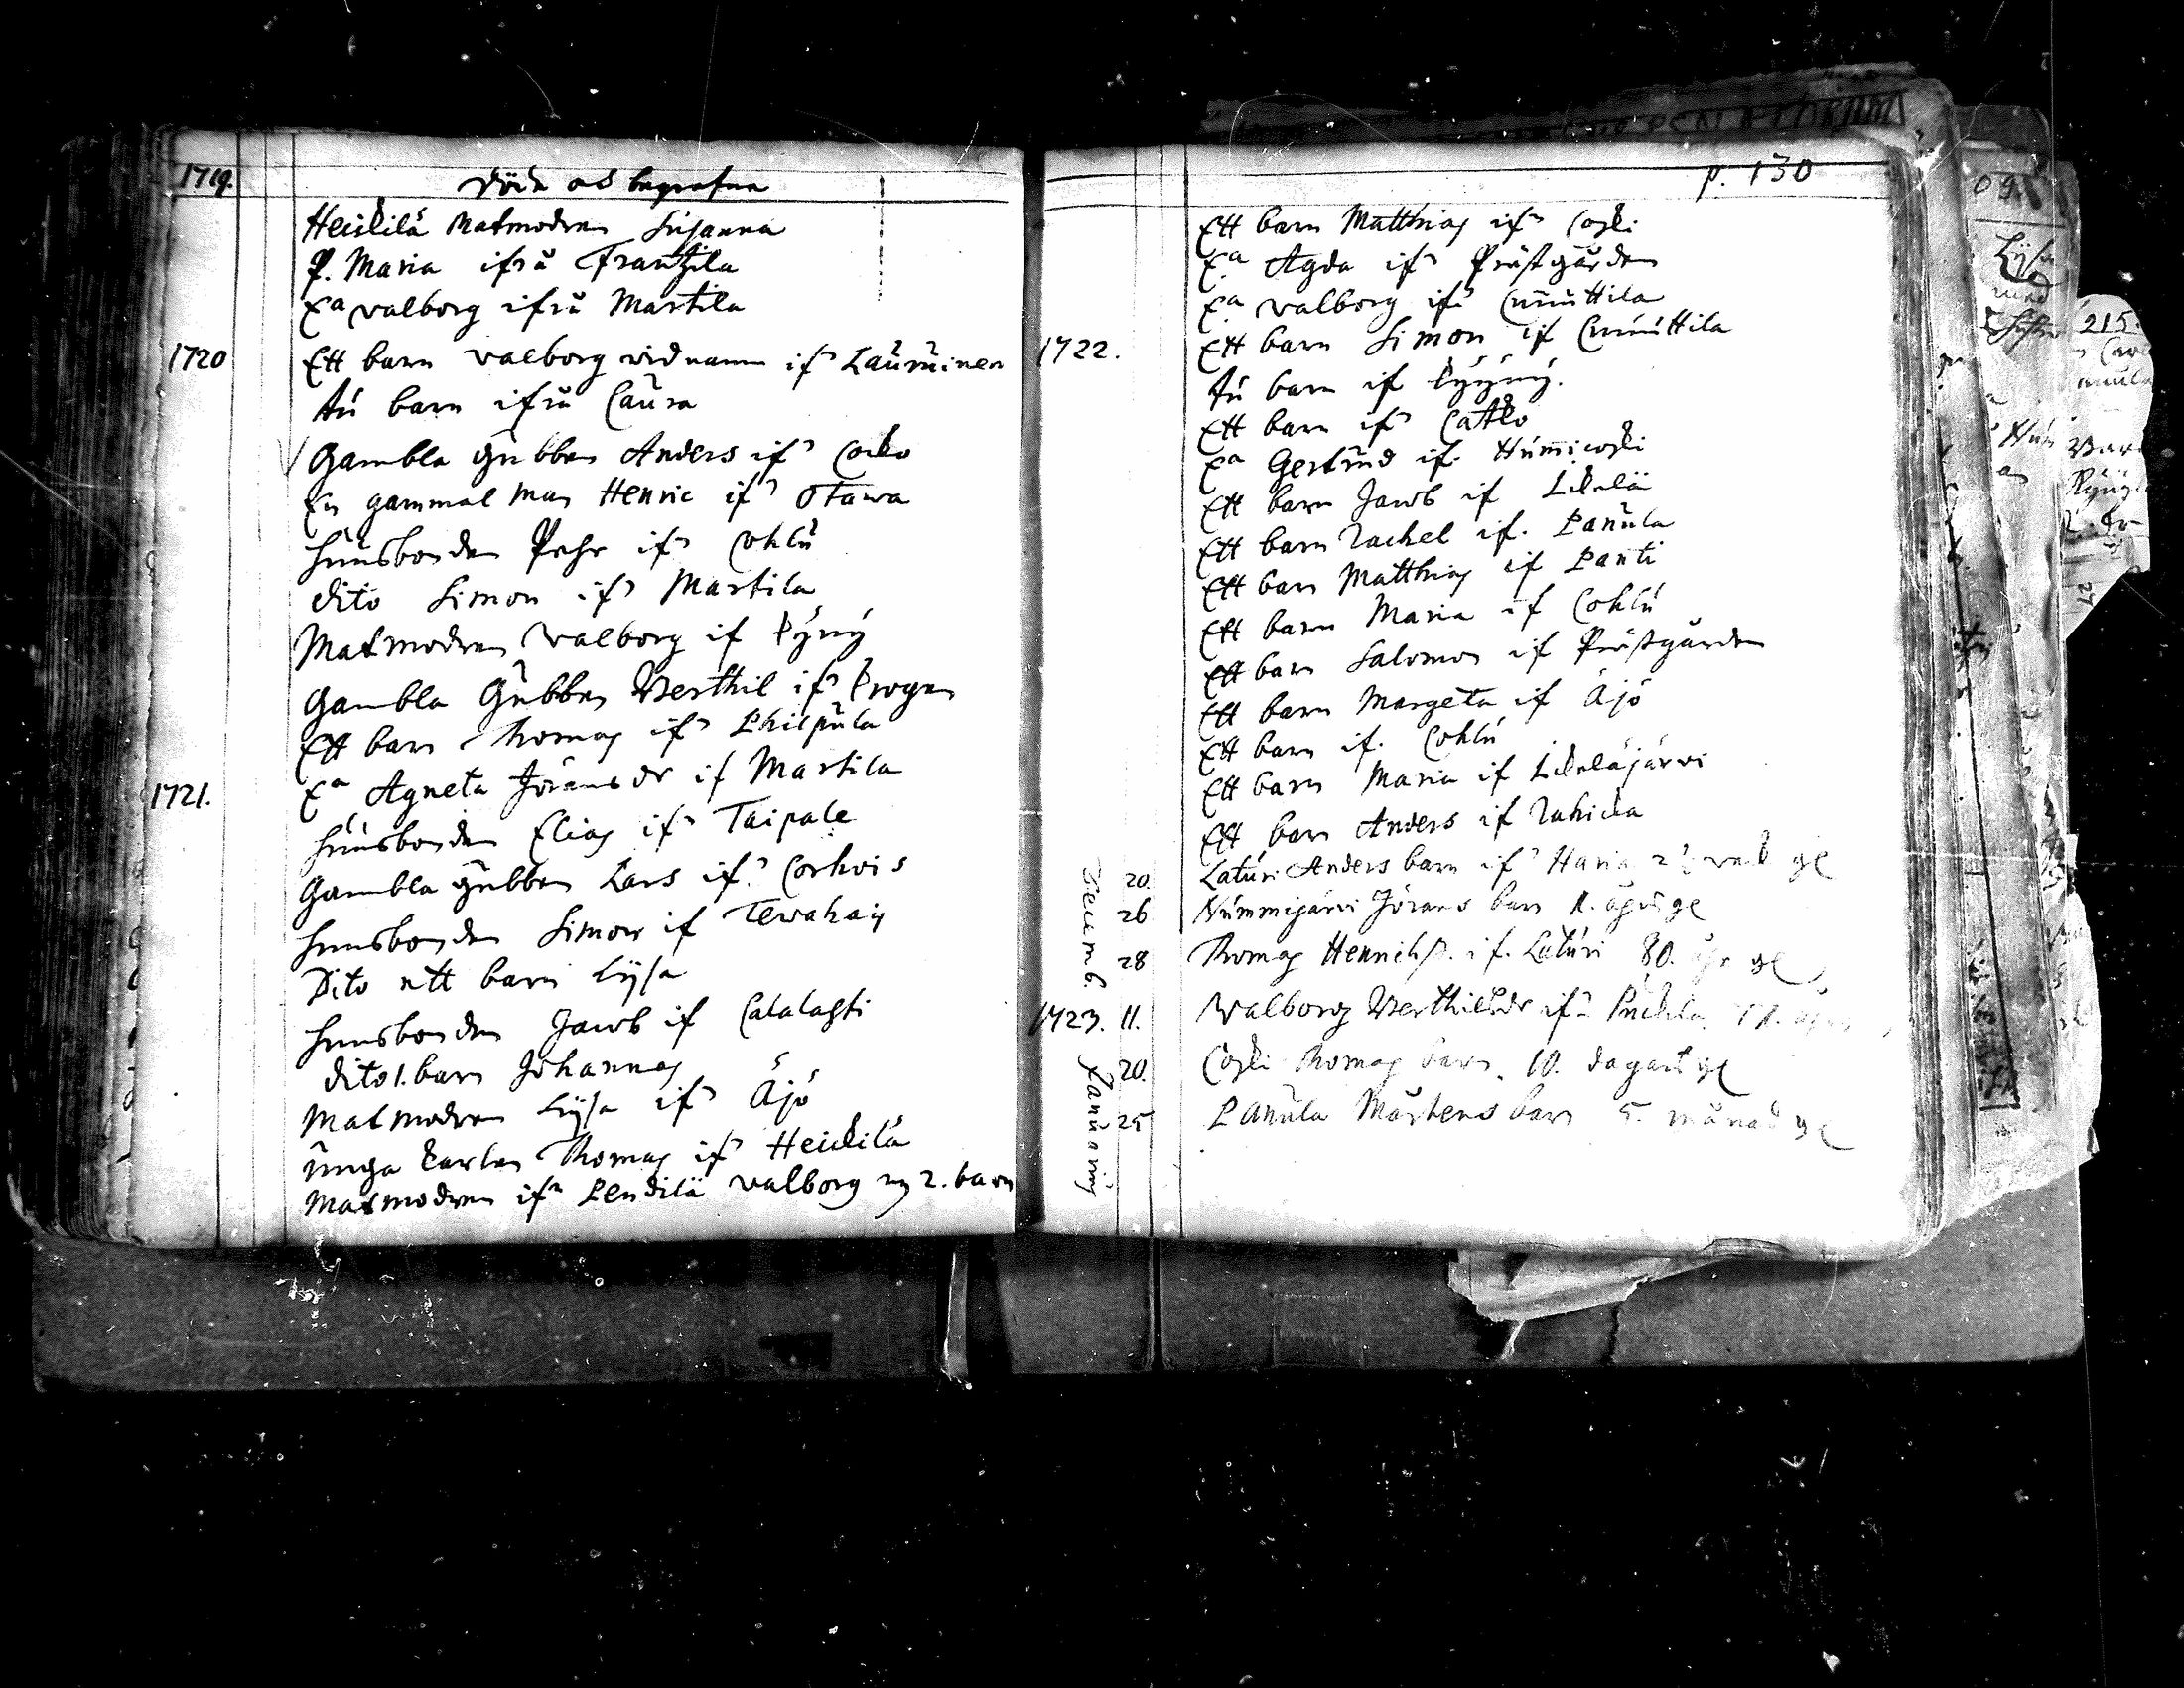 1719. Döde och begrafne
Heickilä Matmodren Susanna
P. Maria ifrå Frantzila
Ea Valborg ifrå Martila
1720 Ett barn Valborg widnamn ifr Lauruinen
Tu barn ifrå Caura
Gambla gubben Anders ifr Cocko
En gammal man Henric ifr Otawa
Huusbonden Pehr ifr Cohlu
dito Simon ifr Martila
Matmodren Valborg if Pyny
Gambla Gubben Berthil ifr
Ett barn Thomas ifr Philpula
1721. Ea Agneta Jöransdr if Martila
Huusbonden Elias ifr Taipale
Gambla gubben Lars ifr Corhois
Huusbonden Simon if
Dito ett barn Lysa
Huusbonden Jacob if Calalahti
dito 1. barn Johannes
Matmodren Lysa ifr Äjö
unga karlen Thomas ifr Heickilä
Matmodren ifr Lendilä Valborg 2. barn
p. 130
Ett barn Matthias ifr Coski
Ea Agda ifr Prästgården
Ea Valborg ifr Cnuuttila
1722. Ett barn Simon if Cnuuttila
Tu barn if
Ett barn ifr Catko
Ea Gertrud if. Humicoski
Ett barn Jacob if
Ett barn Rachel if. Panula
Ett barn Matthias if Panti
Ett barn Maria if Cohlu
Ett barn Salomon if Prästgården
Ett barn Margeta if Äjö
Ett barn if. Cohlu
Ett barn Maria if
Ett barn Anders if Rahicka
Decemb. 20. Laturi Anders barn ifr Haria 2½
26 Nummijärvi Jörans barn 1. åhrs gl
28 Thomas Henrichss. if. Laturi 80. åhr gl
1723. 11. Valborg Berthilsdr ifr
Januarij 20. Coski Thomas barn. 10. dagars gl
25 Panula Mårtens barn 5. månad gl